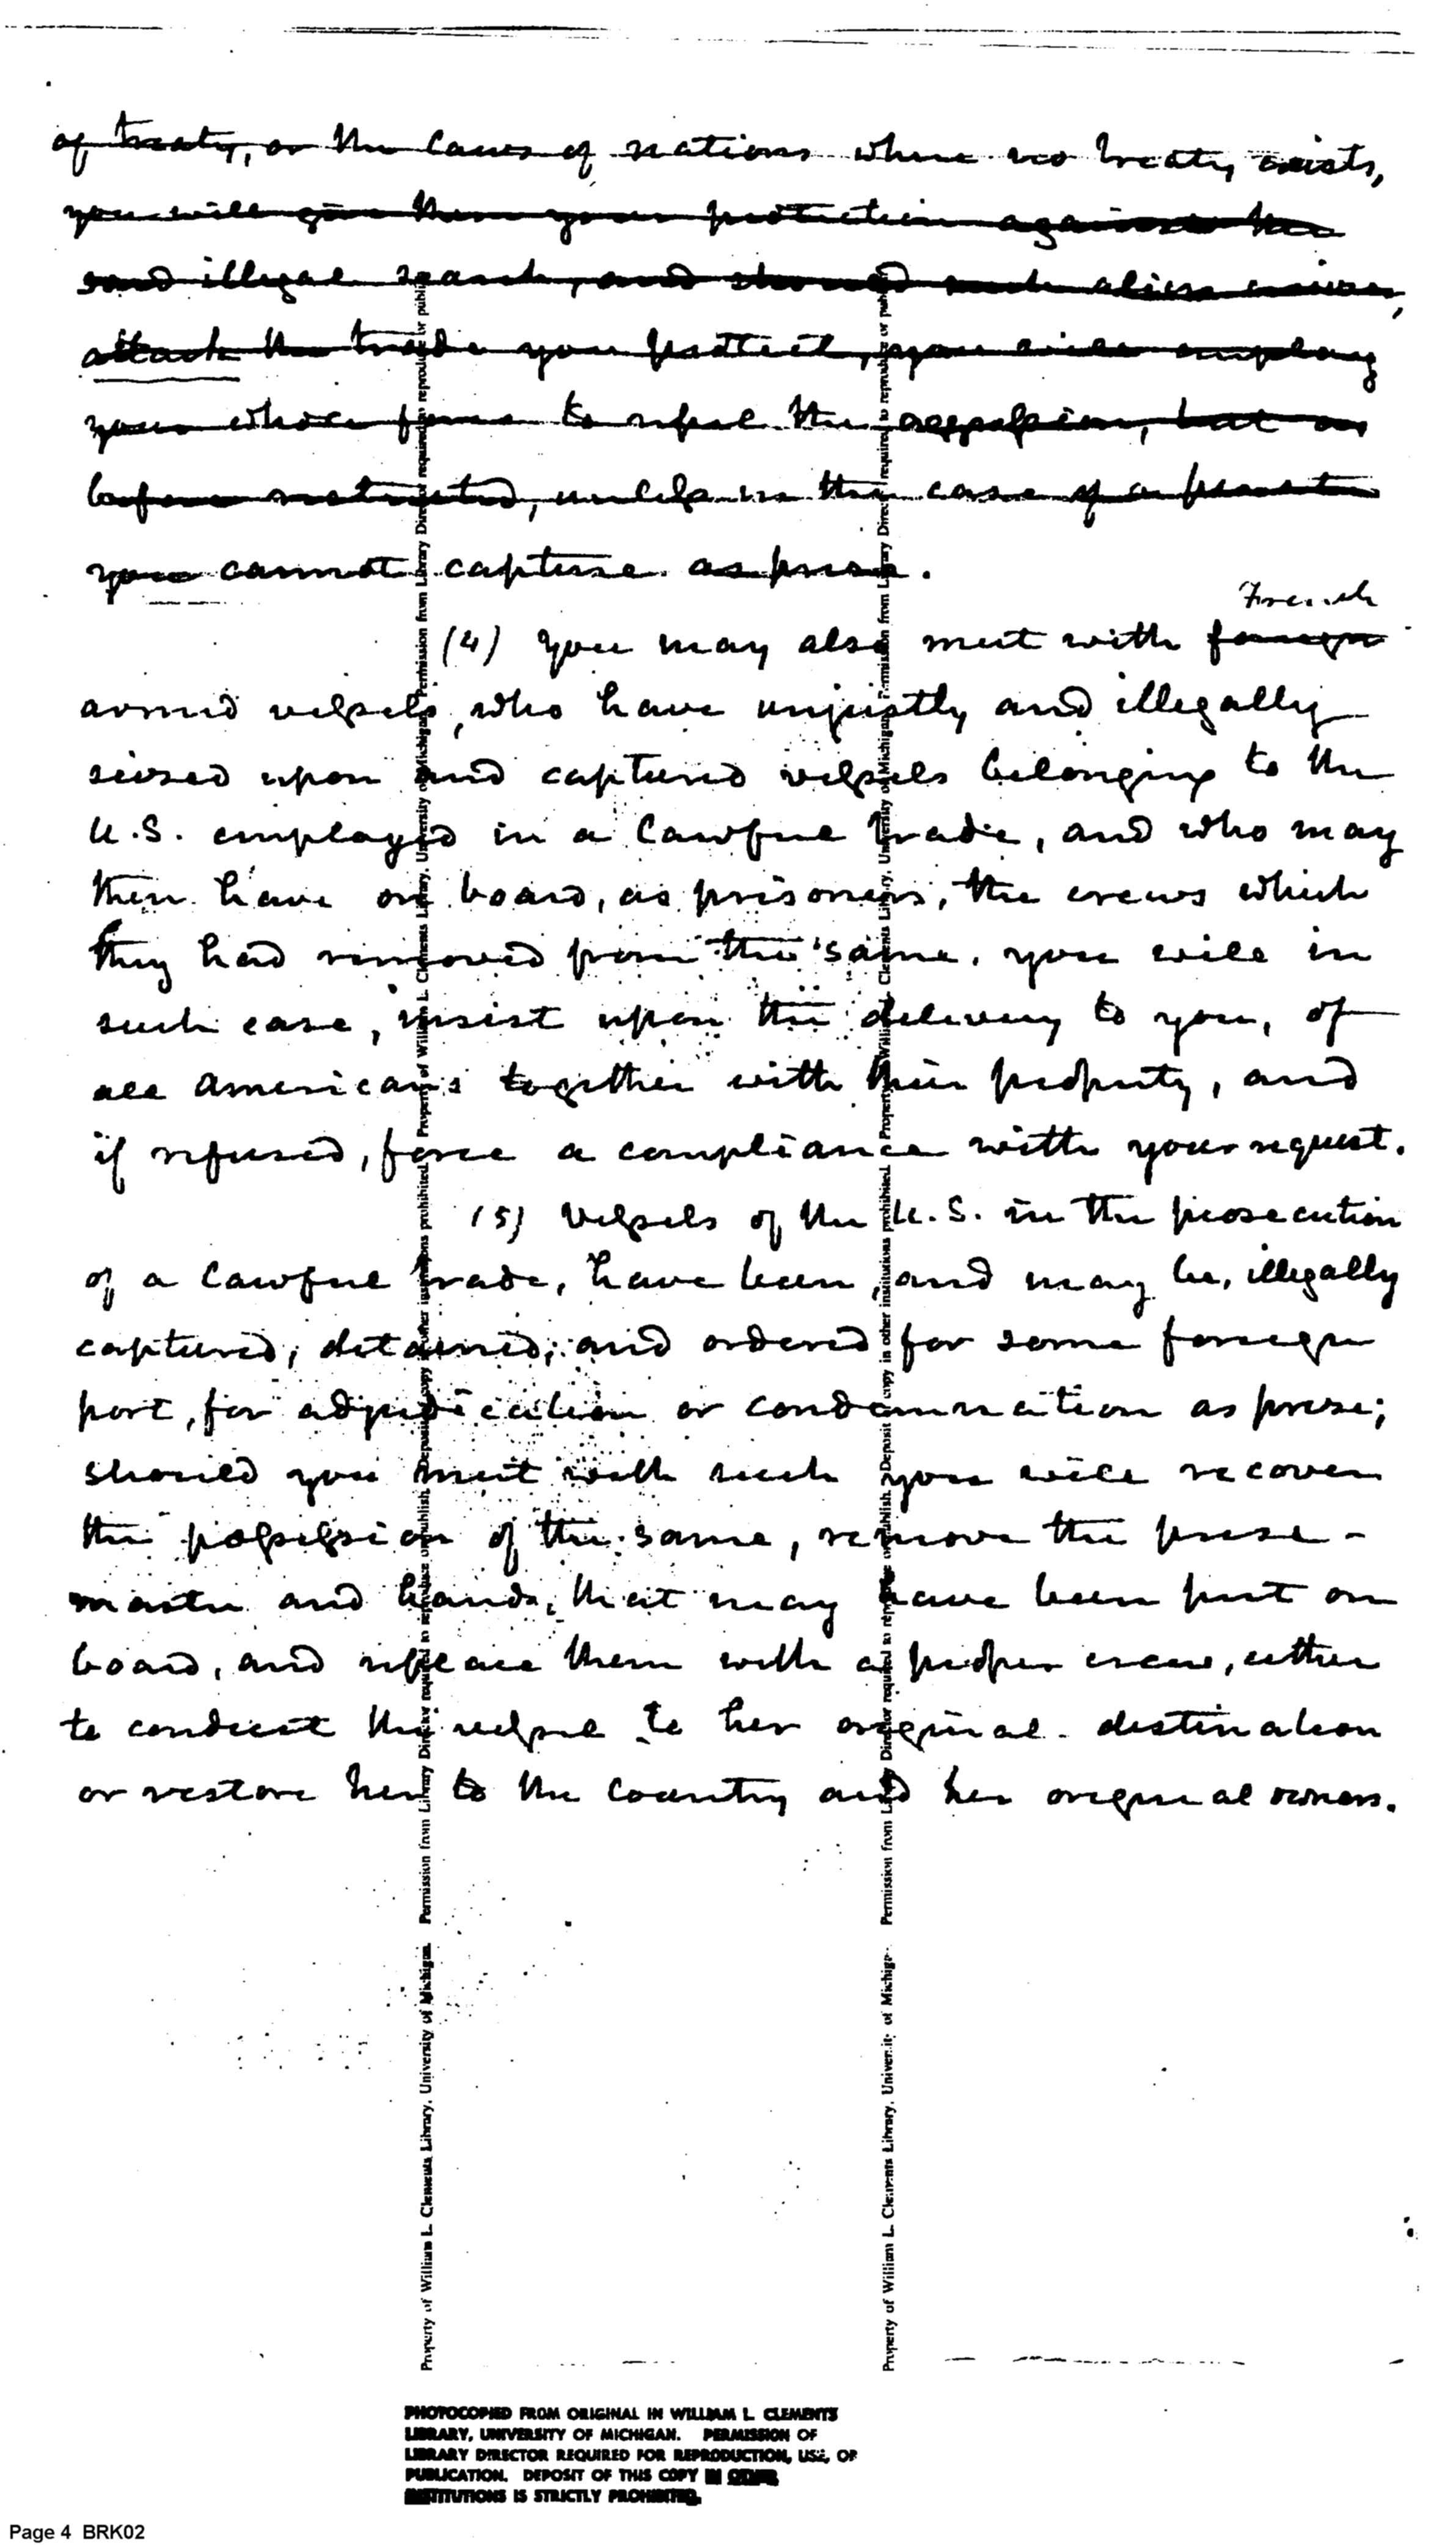 of treaty, or the laws of nations where no treaty exists,
you will give them your protection against the
said illegal search, and should such alien cruiser,
attack the trade you protect, you will employ
your whole force to repel the aggression, but as
before restricted, unless in the case of a
you cannot capture as prise.
French
(4) You may also meet with foreign
armed vessels, who have unjustly and illegally
seised upon and captured vessels belonging to the
U.S. employed in a lawful trade, and who may
then have on board, as prisoners, the crews which
they had removed from the same. you will in
such case, insist upon the delivery to you, of
all Americans together with their property, and
if refused, force a compliance with your request.
(5) Vessels of the U.S. in the prosecution
of a lawful trade, have been, and may be, illegally
captured, detained, and ordered for some foreign
port, for adjudication or condemnation as prise;
should you meet with such you will recover
the possession of the same, remove the prise-
master and hands, that may have been put on
board, and replace them with a proper crew, either
to conduct the vessel to her original destination
or restore her to the country and her original owners.
Property of William L. Clements Library, University of Michigan. Permission from Library Director required to reproduce or publish. Deposit copy in other institutions prohibited. Property of William L. Clements Library, University of Michigan. Permission from Library Director required to reproduce or publish
Property of William L. Clements Library, University of Michigan. Permission from Library Director required to reproduce or publish. Deposit copy in other institutions prohibited. Property of William L. Clements Library, University of Michigan. Permission from Library Director required to reproduce or publish
PHOTOCOPIED FROM ORIGINAL IN WILLIAM L. CLEMENTS
LIBRARY, UNIVERSITY OF MICHIGAN. PERMISSION OF
LIBRARY DIRECTOR REQUIRED FOR REPRODUCTION, USE, OR
PUBLICATION. DEPOSIT OF THIS COPY IN OTHER
INSTITUTIONS IS STRICTLY PROHIBITED.
Page 4 BRK02